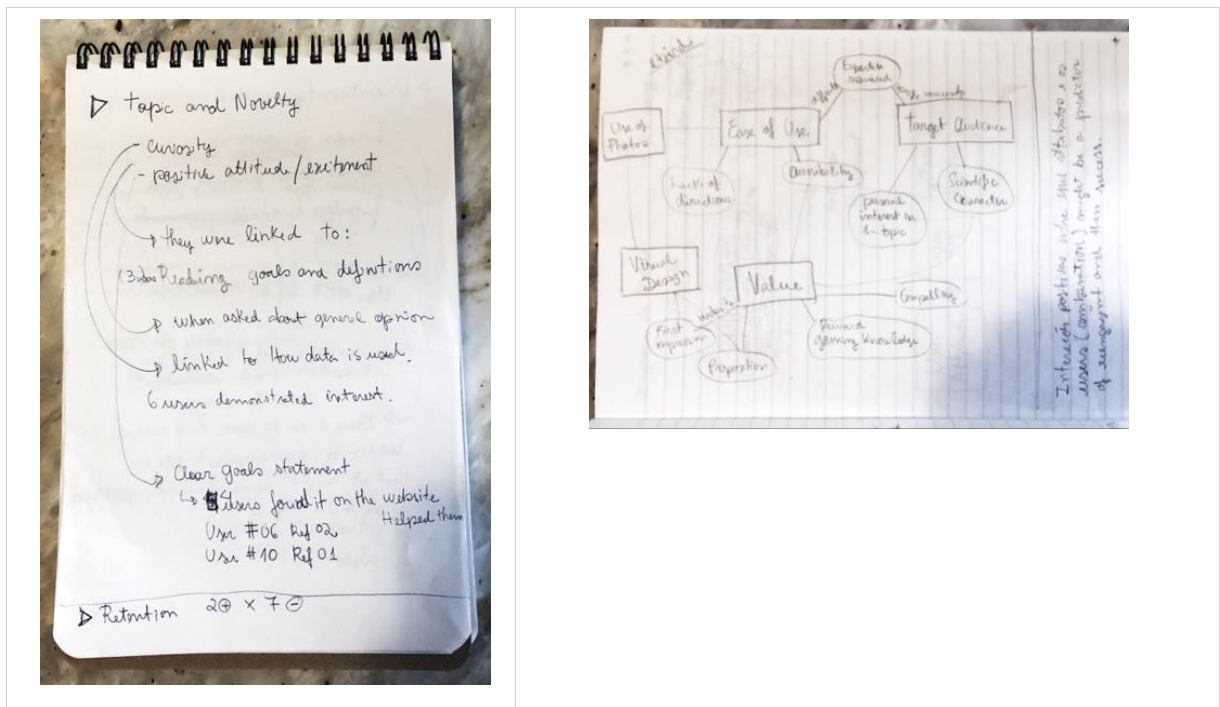 Topic and Novelty
- curiosity
- positive attitude/excitment
they were linked to:
Reading goals and definitions
when asked about general opnion
linked to How data is used.
6 users demonstrated interest.
Clear goals statement
4 users found it on the website
Helped them
User #06 Ref 02
User #10 Ref 01
Retention 2⊕ × 7⊖
Expertise
required
affects
Use of
Photos
Ease of Use
Target Audience
Lack of
directions
personal
interest in
topic
Scientific
Character
Visual
Design
Value
website
Compelling
First
impression
Proposition
Reward
gaining Knowledge
users (combination) might be a predictor
of engagement and then sucess.